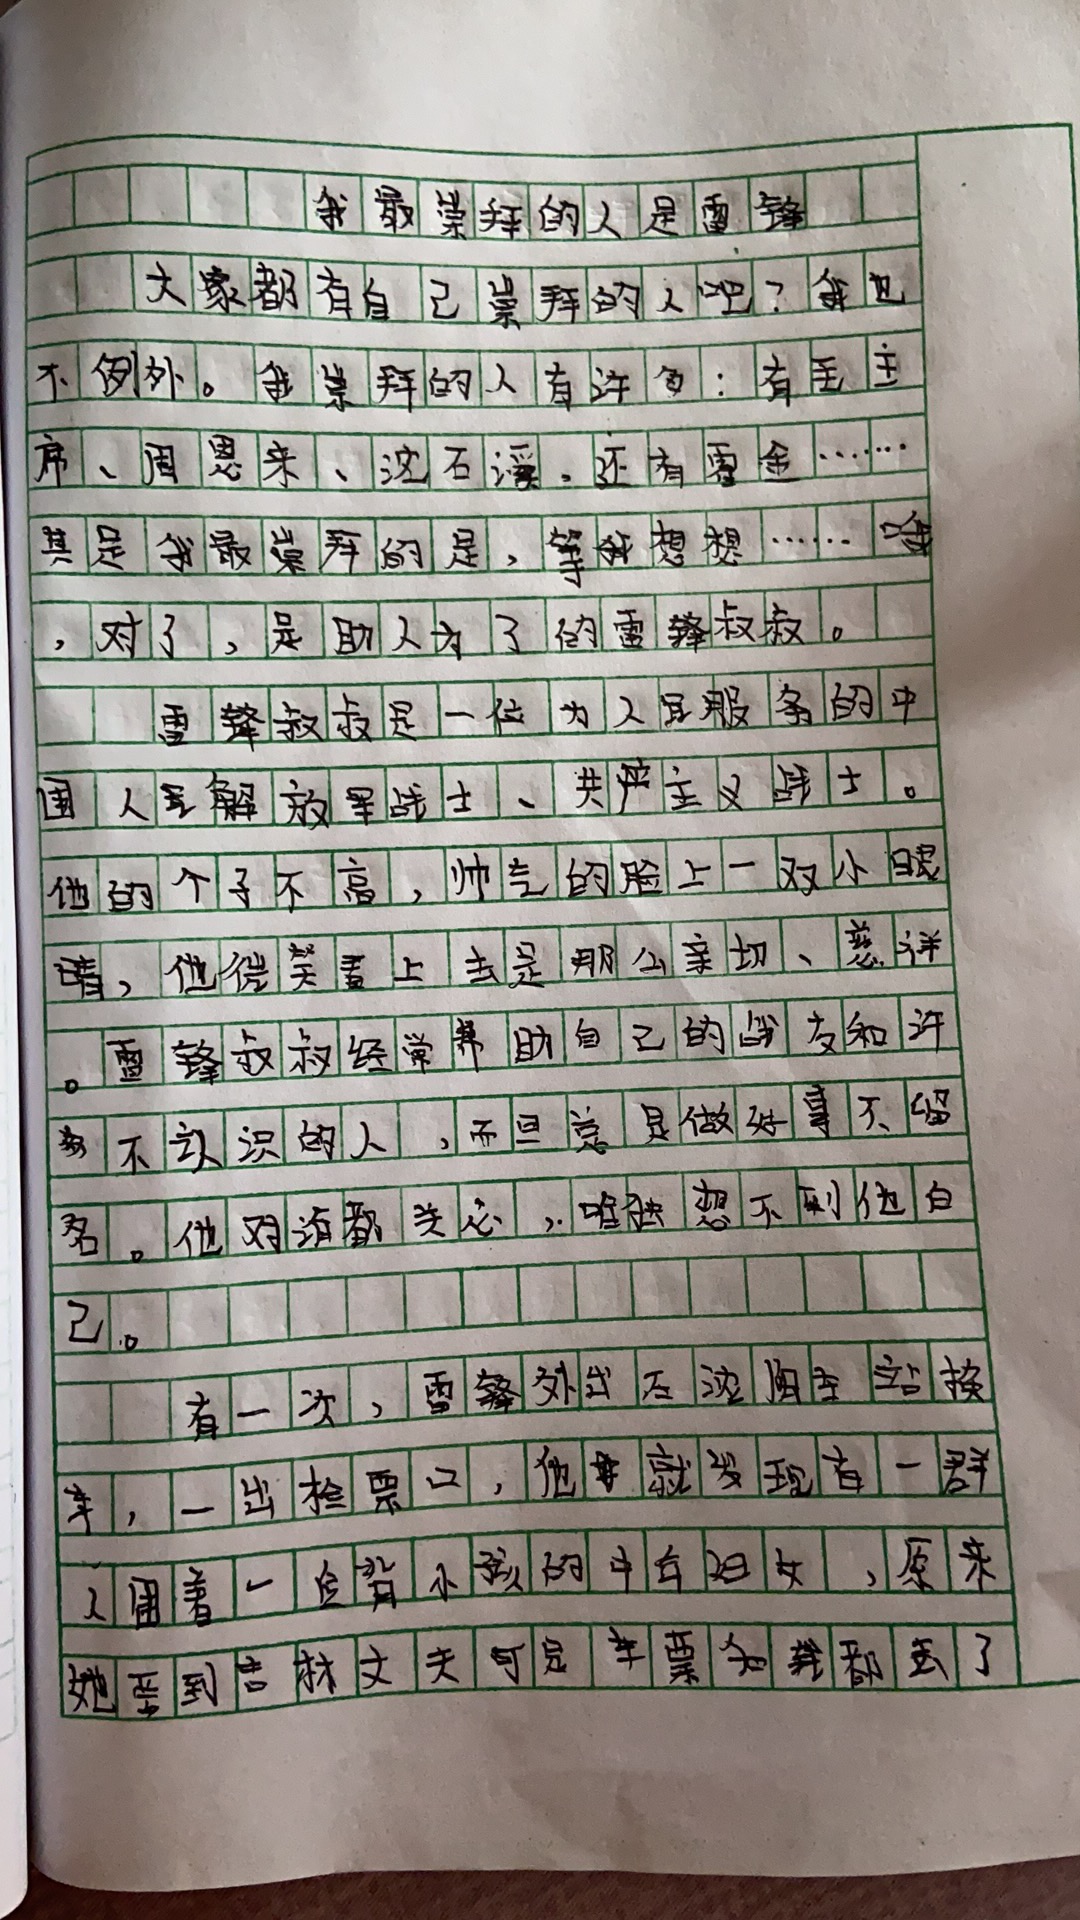 我最崇拜的人是雷锋
大家都有自己崇拜的人吧？我也
不例外。我崇拜的人有许多：有毛主
席、周恩来、沈石溪，还有霍金……
其是我最崇拜的是，等我想想……哦
，对了，是助人为了的雷锋叔叔。
雷锋叔叔是一位为人民服务的中
国人民解放军战士、共产主义战士。
他的个子不高，帅气的脸上一对小眼
睛，他微笑着上去是那么亲切、慈祥
。雷锋叔叔经常帮助自己的战友和许
多不认识的人，而且总是做好事不留
名。他对谁都关心，唯独想不到他自
己。
有一次，雷锋外出在沈阳车站换
车，一出检票口，他就发现有一群
人围着一位背小孩的中年妇女，原来
她要到吉林丈夫可是车票和钱都丢了